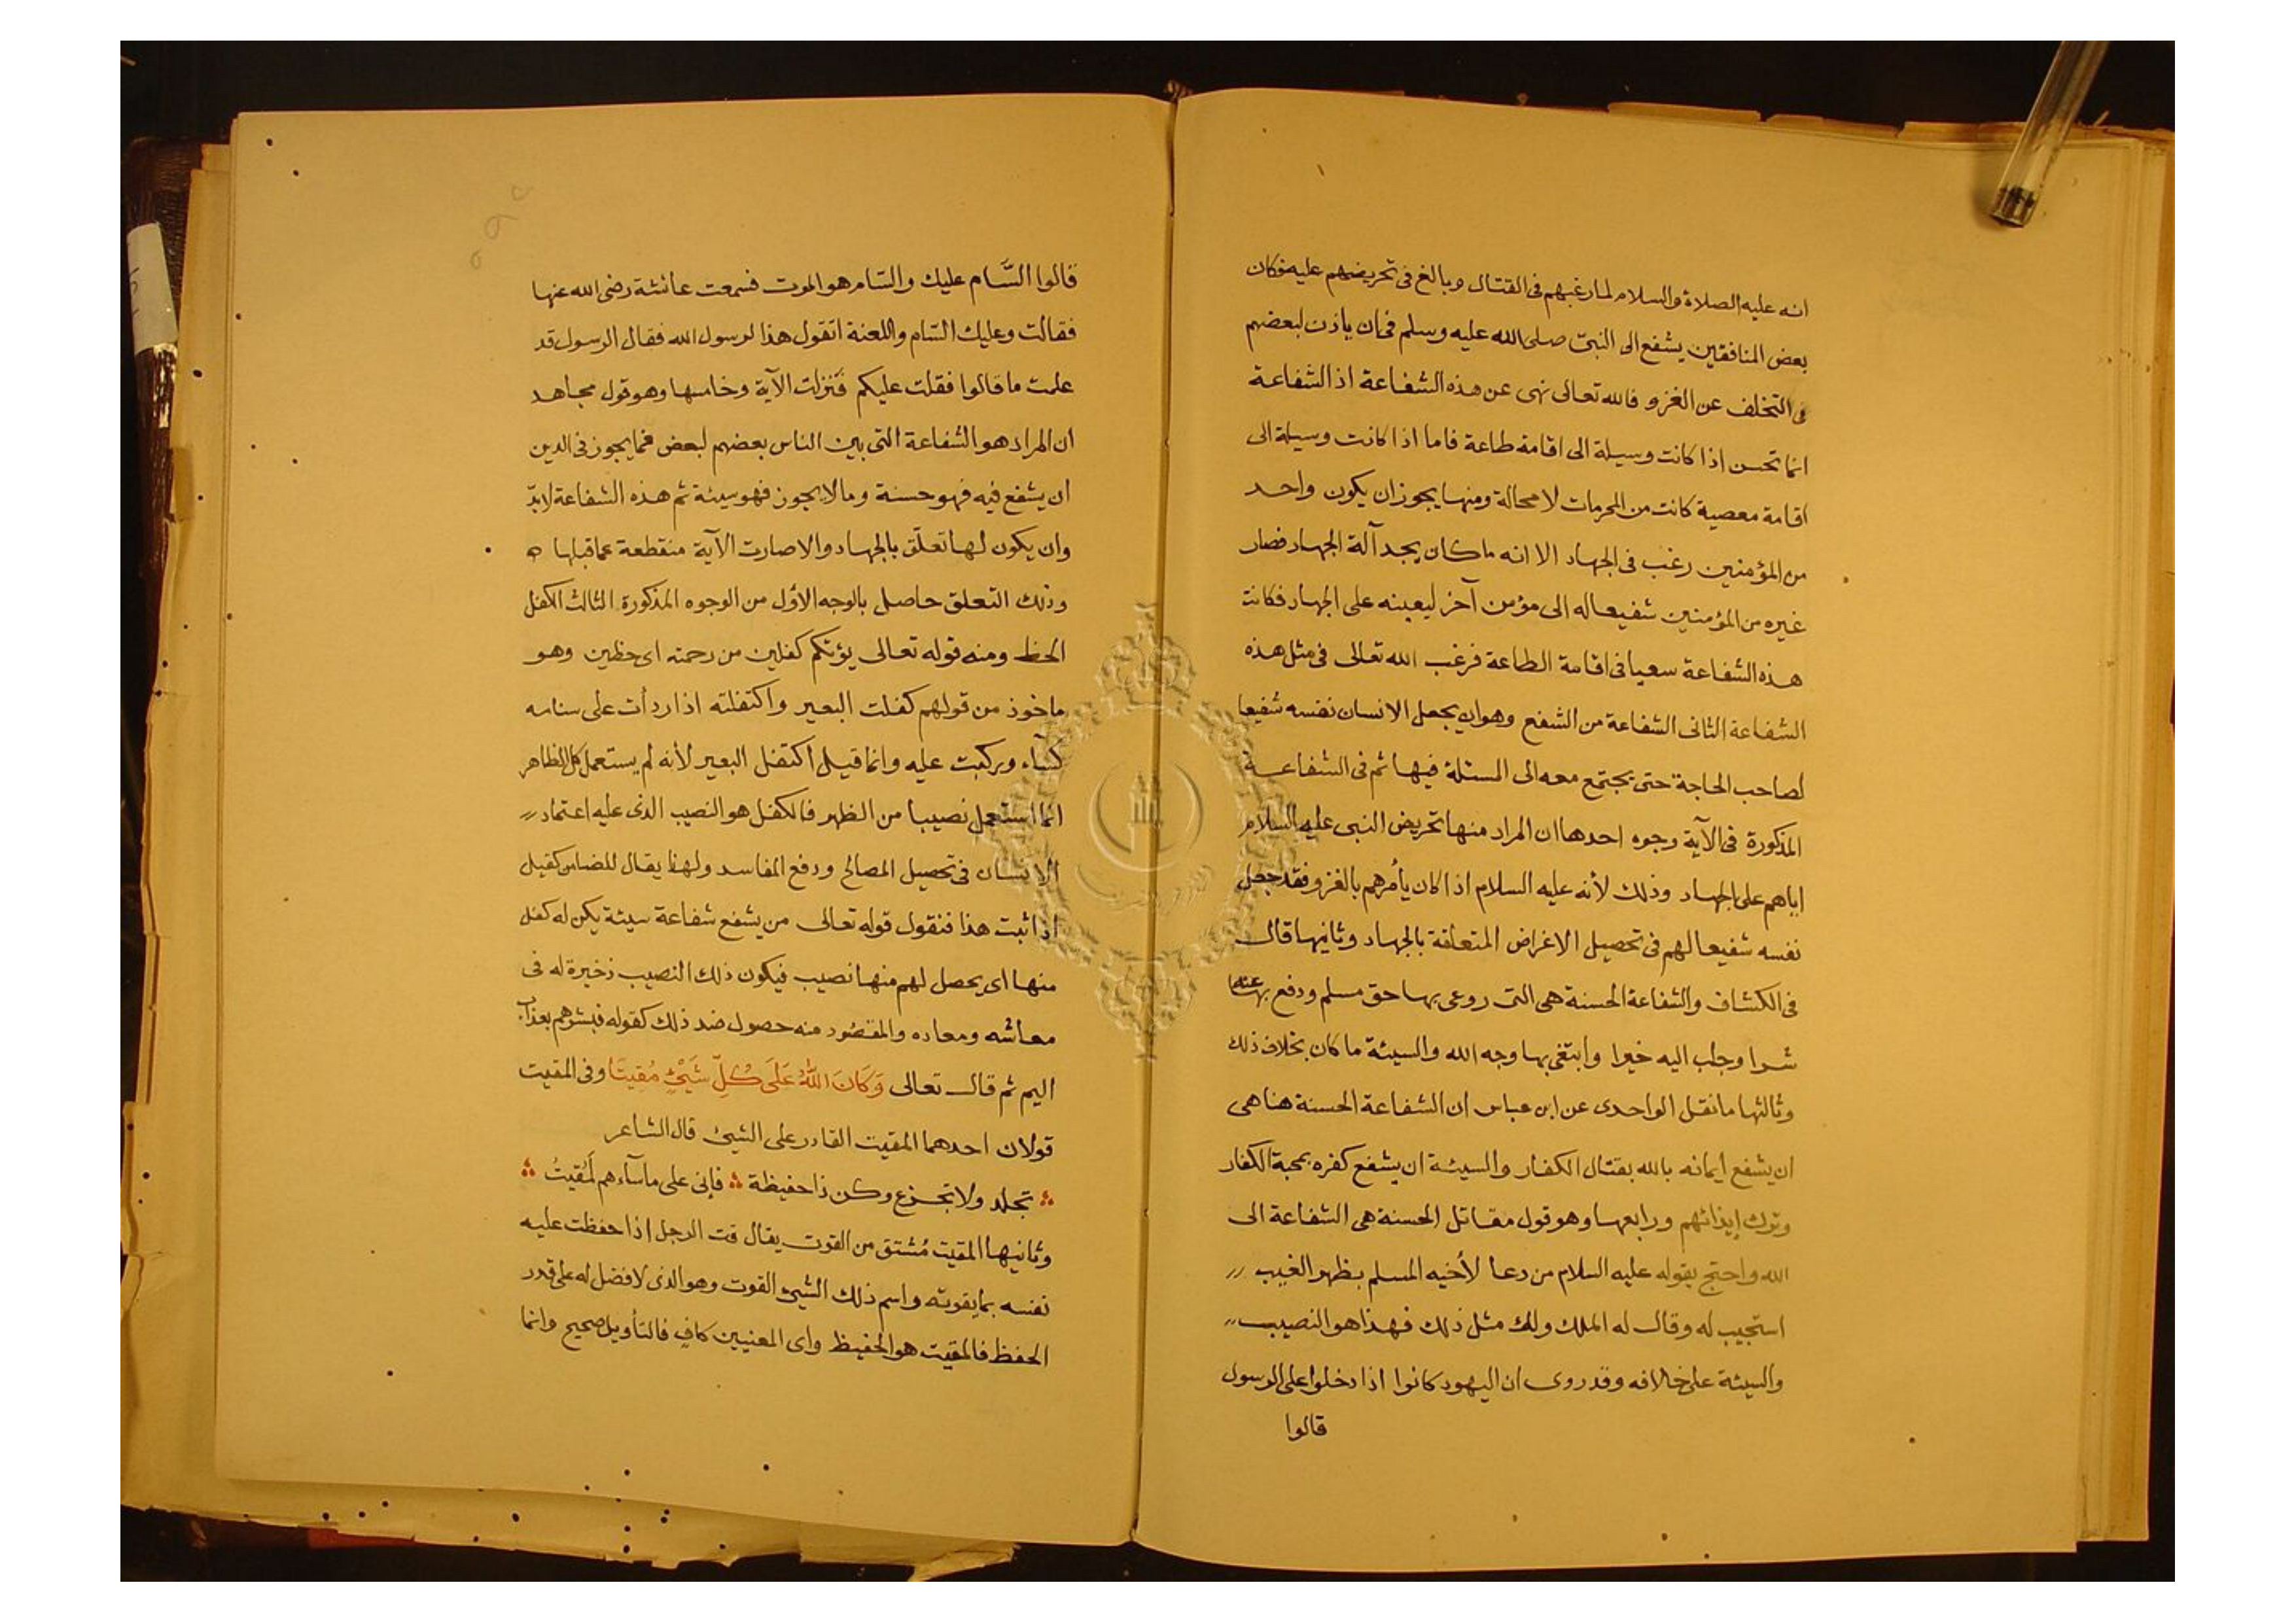 انه عليه الصلاة والسلام لما رغبهم فى القتال وبالغ فى تحريضهم عليه فكان
بعض المنافقين يشفع الى النبىّ صلى الله عليه وسلم فى ان ياذن لبعضهم
فى التخلف عن الغزو فالله تعالى نهى عن هذه الشفاعة اذ الشفاعة
انما تحسن اذا كانت وسيلة الى اقامة طاعة فاما اذا كانت وسيلة الى
اقامة معصية كانت من المحرمات لا محالة ومنها يجوز ان يكون واحد
من المؤمنين رغب فى الجهاد الا انه ما كان يجد آلة الجهاد فصار
غيره من المؤمنين شفيعا له الى مؤمن آخر ليعينه على الجهاد فكانت
هذه الشفاعة سعيا فى اقامة الطاعة فرغب الله تعالى فى مثل هذه
الشفاعة الثانى الشفاعة من الشفع وهو ان يجعل الانسان نفسه شفيعا
لصاحب الحاجة حتى يجتمع معه الى المسئلة فيها ثم فى الشفاعة
المذكورة فى الآية وجوه احدها ان المراد منها تحريض النبى عليه السلام
اياهم على الجهاد وذلك لأنه عليه السلام اذا كان يأمرهم بالغزو فقد جعل
نفسه شفيعا لهم فى تحصيل الاغراض المتعلقة بالجهاد وثانيها قال
فى الكشاف والشفاعة الحسنة هى التى روعى بها حق مسلم ودفع بها عنه
شرا وجلب اليه خيرا وابتغى بها وجه الله والسيئة ما كان بخلاف ذلك
وثالثها ما نقل الواحدى عن ابن عباس ان الشفاعة الحسنة هنا هى
ان يشفع ايمانه بالله بقتال الكفار والسيئة ان يشفع كفره بمحبة الكفار
وترك إيذائهم ورابعها وهو قول مقاتل الحسنة هى الشفاعة الى
الله واحتج بقوله عليه السلام من دعا لأخيه المسلم بظهر الغيب
استجيب له وقال له الملك ولك مثل ذلك فهذا هو النصيب
والسيئة على خلافه وقد روى ان اليهود كانوا اذا دخلوا على الرسول
قالوا
قالوا السَّام عليك والسّام هو الموت فسمعت عائشة رضى الله عنها
فقالت وعليك السّام واللعنة اتقول هذا لرسول الله فقال الرسول قد
علمت ما قالوا فقلت عليكم فنزلت الآية وخامسها وهو قول مجاهد
ان المراد هو الشفاعة التى بين الناس بعضهم لبعض فما يجوز فى الدين
ان يشفع فيه فهو حسنة وما لا يجوز فهو سيئة ثم هذه الشفاعة لا بدّ
وان يكون لها تعلّق بالجهاد والا صارت الآية منقطعة عما قبلها
وذلك التعلق حاصل بالوجه الأول من الوجوه المذكورة الثالث الكفل
الحظ ومنه قوله تعالى يؤتكم كفلين من رحمته اى حظين وهو
ماخوذ من قولهم كفلت البعير واكتفلته اذا ردأت على سنامه
كساء وركبت عليه وانما قيل اكتفل البعير لأنه لم يستعمل كل الظاهر
انما استعمل نصيبا من الظهر فالكفل هو النصيب الذى عليه اعتماد
الانسان فى تحصيل المصالح ودفع المفاسد ولهذا يقال للضامن كفيل
اذا ثبت هذا فنقول قوله تعالى من يشفع شفاعة سيئة يكن له كفل
منها اى يحصل لهم منها نصيب فيكون ذلك النصيب ذخيرة له فى
معاشه ومعاده والمقصود منه حصول ضد ذلك كقوله فبشرهم بعذاب
اليم ثم قال تعالى وَكَانَ اللهُ عَلَى كُلِّ شَيْءٍ مُقِيتًا وفى المقيت
قولان احدهما المقيت القادر على الشيئ قال الشاعر
تجلد ولا تجزع وكن ذا حفيظة فإنى على ماساءهم لَمُقيتُ
وثانيها المقيت مُشتق من القوت يقال قت الرجل اذا حفظت عليه
نفسه بما يقوته واسم ذلك الشيئ القوت وهو الذى لا فضل له على قدر
الحفظ فالمقيت هو الحفيظ واى المعنيين كافٍ فالتأويل صحيح وانما